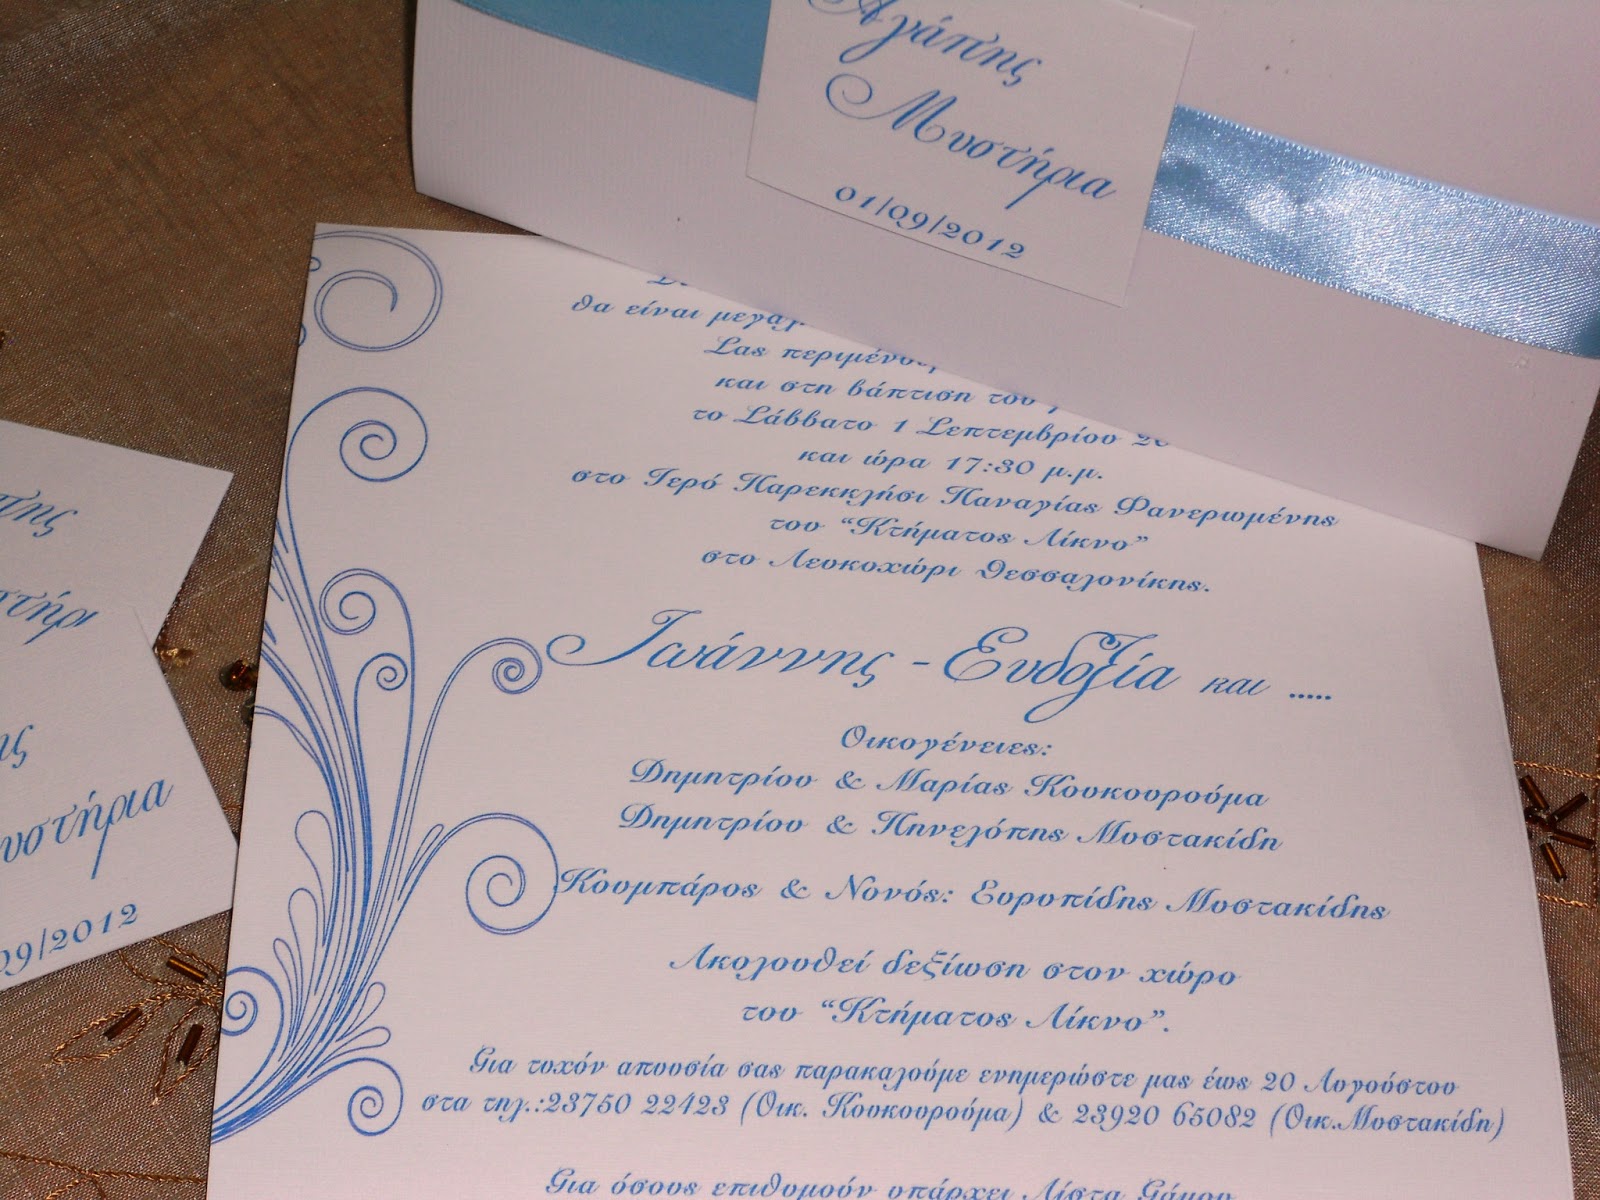 Αγάπης
Μυστήρια
01/09/2012
θα είναι
Σας
και στη βάπτιση του
το Σάββατο 1 Σεπτεμβρίου
και ώρα 17:30 μ.μ.
στο Ιερό Παρεκκλήσι Παναγίας Φανερωμένης
του “Κτήματος Λίκνο”
στο Λευκοχώρι Θεσσαλονίκης.
Ιωάννης - Ευδοξία και .....
Οικογένειες:
Δημητρίου & Μαρίας Κουκουρούμα
Δημητρίου & Πηνελόπης Μυστακίδη
Κουμπάρος & Νονός: Ευρυπίδης Μυστακίδης
Ακολουθεί δεξίωση στον χώρο
του “Κτήματος Λίκνο”.
Για τυχόν απουσία σας παρακαλούμε ενημερώστε μας έως 20 Αυγούστου
στα τηλ.:23750 22423 (Οικ. Κουκουρούμα) & 23920 65082 (Οικ.Μυστακίδη)
Για όσους επιθυμούν υπάρχει Λίστα Γάμου
09/2012